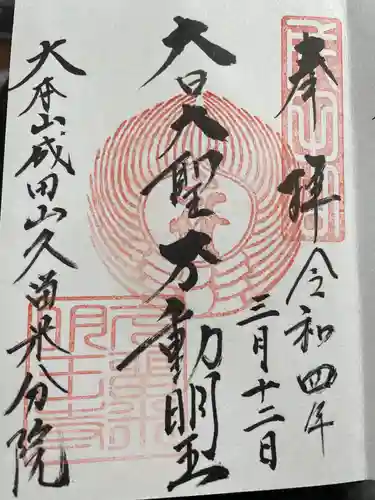 奉拝
令和四年
三月十二日
大日大聖不動明王
大本山成田山久留米分院